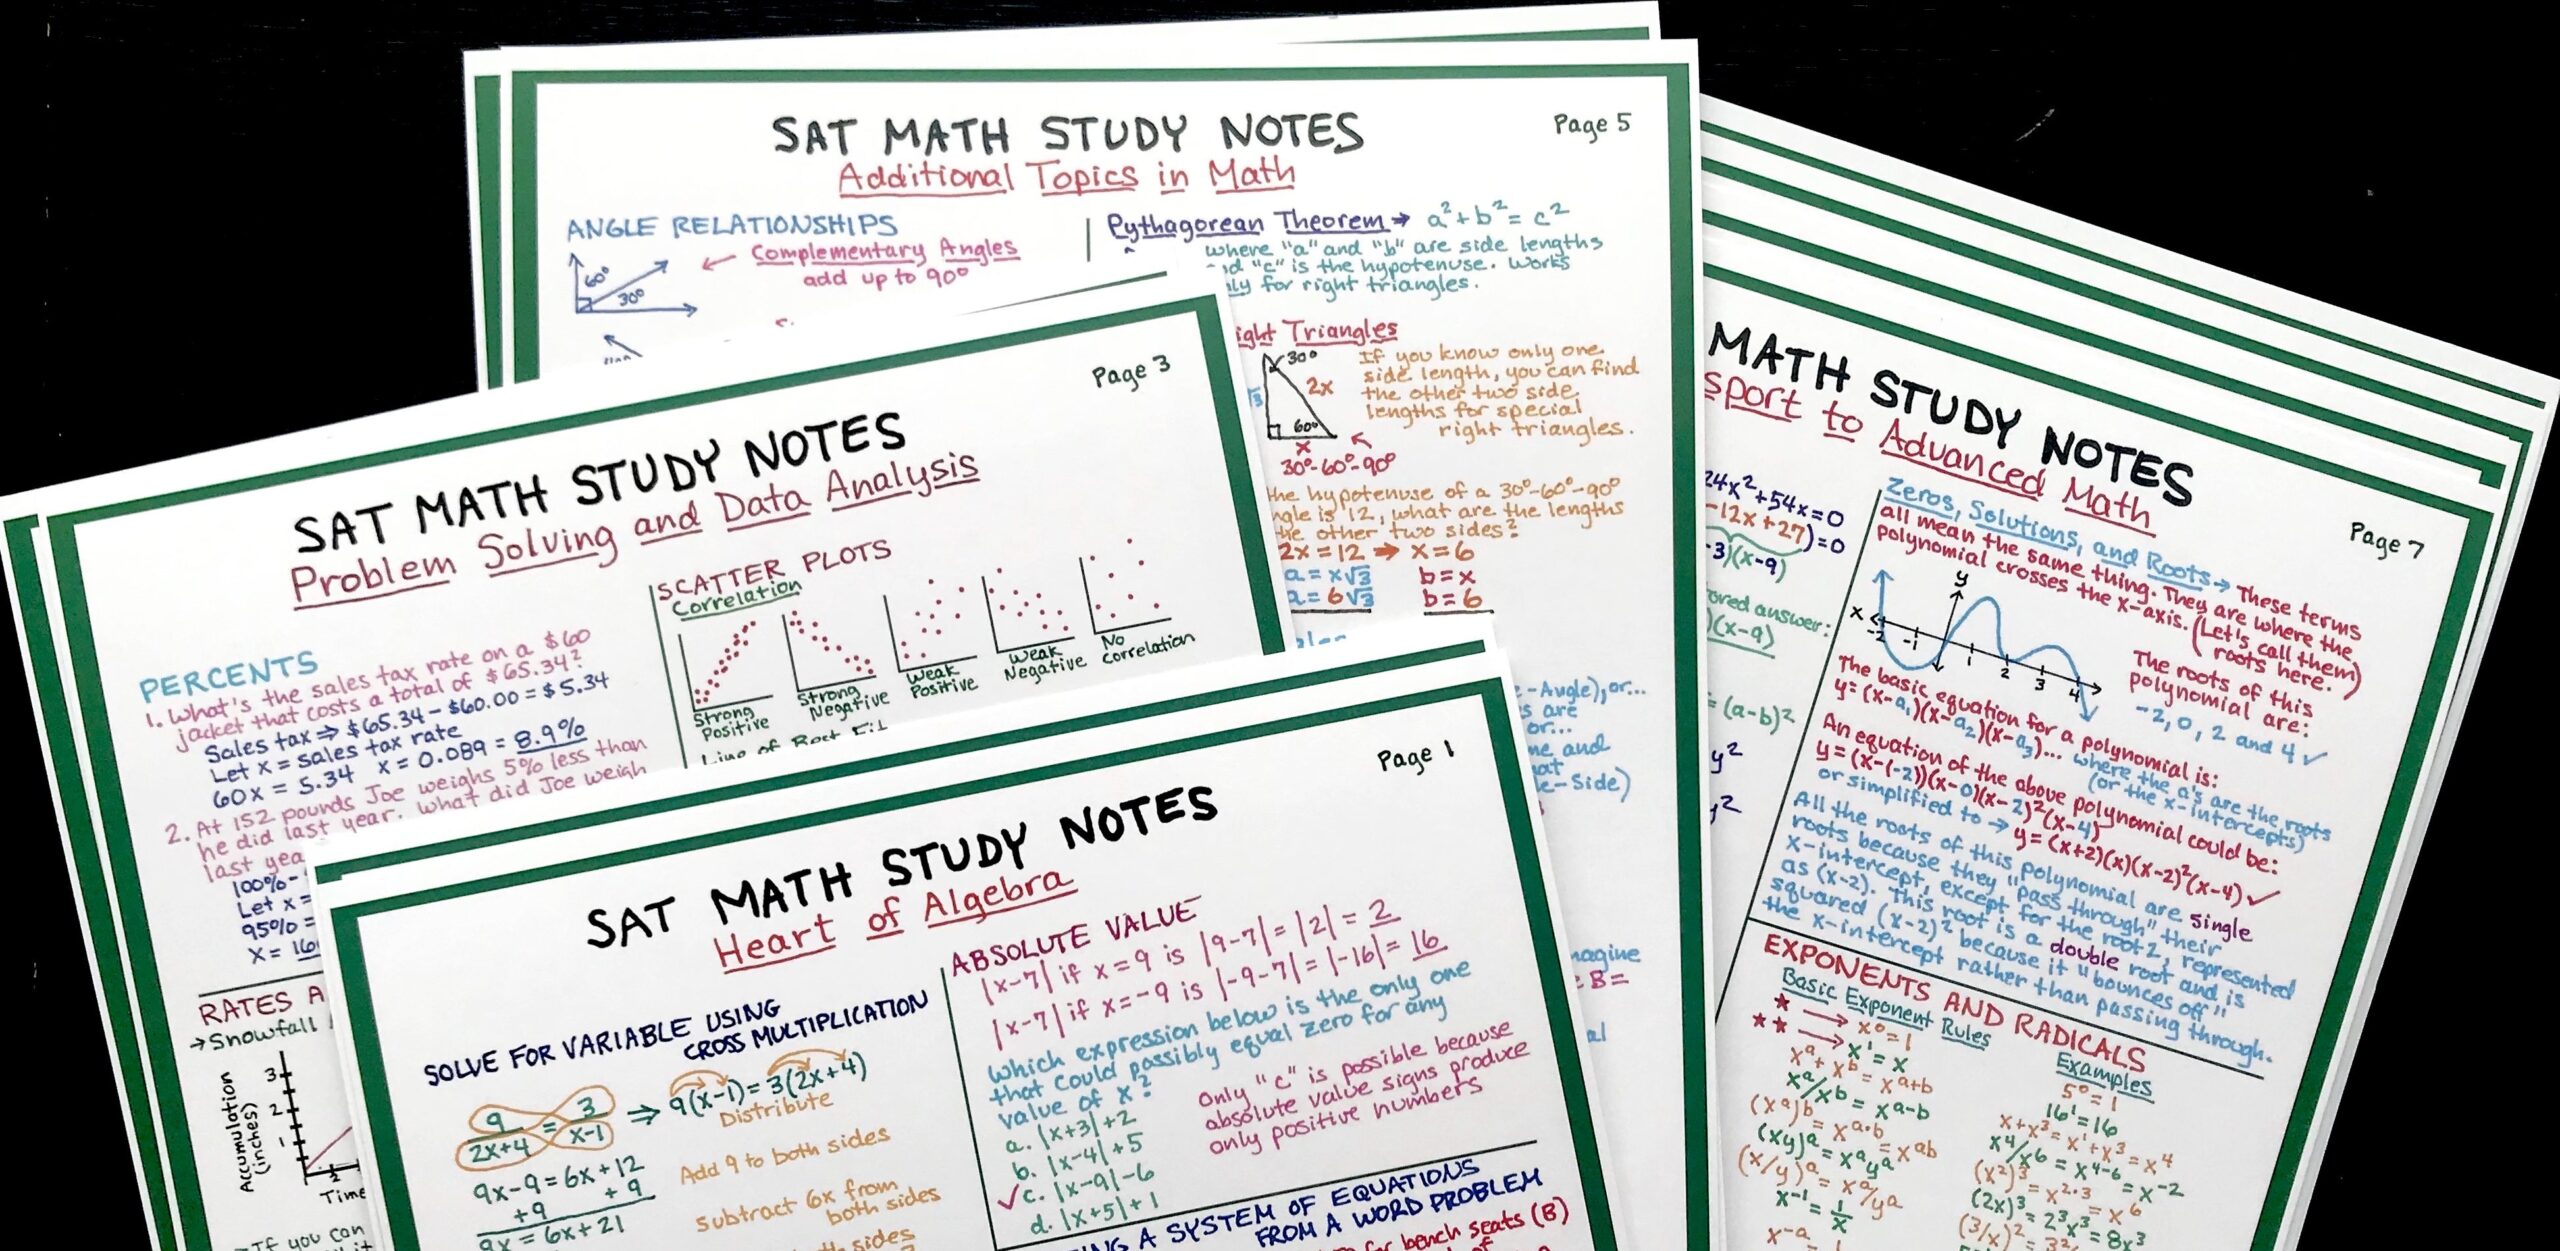 SAT MATH STUDY NOTES
Page 5
Additional Topics in Math
ANGLE RELATIONSHIPS
Complementary Angles
add up to 90°
60°
30°
Pythagorean Theorem → a²+b²=c²
where "a" and "b" are side lengths
"c" is the hypotenuse. Works
for right triangles.
Triangles
30°
2x
60°
x
30°-60°-90°
If you know only one
side length, you can find
the other two side
lengths for special
right triangles.
hypotenuse of a 30°-60°-90°
is 12, what are the lengths
the other two sides?
2x=12 → x=6
a=x√3 b=x
a=6√3 b=6
-Angle), or...
are
or...
and
-Side)
B=
Page 3
SAT MATH STUDY NOTES
Problem Solving and Data Analysis
PERCENTS
1. What's the sales tax rate on a $60
jacket that costs a total of $65.34?
Sales tax ⇒ $65.34-$60.00=$5.34
Let x=sales tax rate
60x=5.34 x=0.089=8.9%
2. At 152 pounds Joe weighs 5% less than
he did last year. What did Joe weigh
last
100%-
Let x=
95%=
x=
RATES
→Snowfall
Accumulation
(inches)
3
2
1
Time
If you can
SCATTER PLOTS
Correlation
Strong
Positive
Strong
Negative
Weak
Positive
Weak
Negative
No
Correlation
Line of Best Fit
Page 1
SAT MATH STUDY NOTES
Heart of Algebra
SOLVE FOR VARIABLE USING
CROSS MULTIPLICATION
9/2x+4 = 3/x-1 ⇒ 9(x-1)=3(2x+4)
Distribute
9x-9=6x+12
+9 +9
Add 9 to both sides
9x=6x+21
Subtract 6x from
both sides
sides
ABSOLUTE VALUE
|x-7| if x=9 is |9-7|=|2|=2
|x-7| if x=-9 is |-9-7|=|-16|=16
Which expression below is the only one
that could possibly equal zero for any
value of x?
a. |x+3|+2
b. |x-4|+5
✓c. |x-9|-6
d. |x+5|+1
Only "c" is possible because
absolute value signs produce
only positive numbers
A SYSTEM OF EQUATIONS
FROM A WORD PROBLEM
for bench seats (B)
MATH STUDY NOTES
Page 7
to Advanced Math
24x²+54x=0
-12x+27)=0
-3)(x-9)
answer:
)(x-9)
=(a-b)²
y²
y²
Zeros, Solutions, and Roots→ These terms
all mean the same thing. They are where the
polynomial crosses the x-axis. (Let's call them
roots here.)
y
x
-2
-1
1
2
3
4
The roots of this
polynomial are:
-2, 0, 2 and 4 ✓
The basic equation for a polynomial is:
y=(x-a₁)(x-a₂)(x-a₃)... where the a's are the roots
(or the x-intercepts)
An equation of the above polynomial could be:
y=(x-(-2))(x-0)(x-2)²(x-4)
or simplified to → y=(x+2)(x)(x-2)²(x-4) ✓
All the roots of this polynomial are single
roots because they "pass through" their
x-intercept, except for the root 2, represented
as (x-2). This root is a double root and is
squared (x-2)² because it "bounces off"
the x-intercept rather than passing through.
EXPONENTS AND RADICALS
Basic Exponent Rules
Examples
★ → x⁰=1
5⁰=1
★★ → x¹=x
16¹=16
xᵃ+xᵇ=xᵃ⁺ᵇ
x+x³=x¹+x³=x⁴
xᵃ/xᵇ=xᵃ⁻ᵇ
x⁴/x⁶=x⁴⁻⁶=x⁻²
(xᵃ)ᵇ=xᵃ·ᵇ=xᵃᵇ
(x²)³=x²·³=x⁶
(xy)ᵃ=xᵃyᵃ
(2x)³=2³x³=8x³
(x/y)ᵃ=xᵃ/yᵃ
(3/x)²=3²/
x⁻¹=1/x
x⁻ᵃ